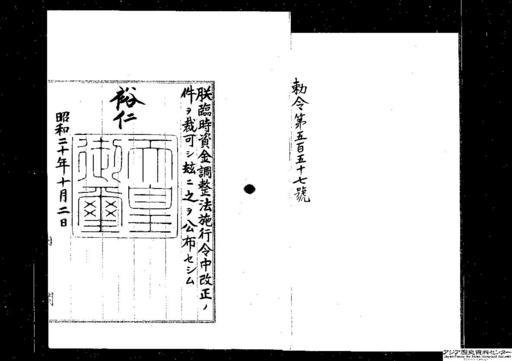 勅令第五百五十七號
朕臨時資金調整法施行令中改正ノ
件ヲ裁可シ玆ニ之ヲ公布セシム
裕仁
天皇
御璽
昭和二十年十月二日
アジア歴史資料センター